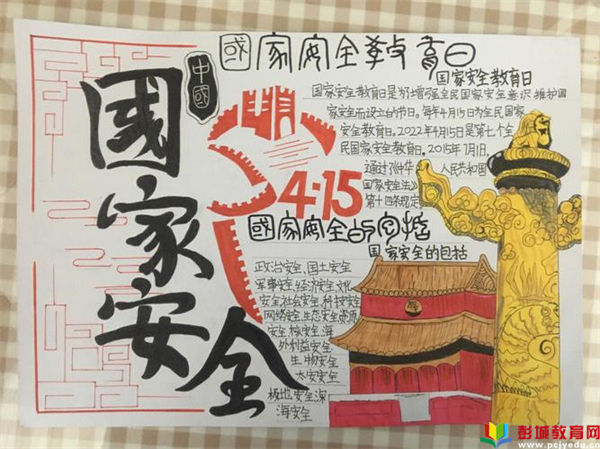 中國
國家安全教育日
國家安全
国家安全教育日
国家安全教育日是为增强全民国家安全意识维护国
家安全而设立的节日。每年4月15日为全民国家
安全教育日。2022年4月15日是第七个全
民国家安全教育日。2015年7月1日,
通过了《中华人民共和国
国家安全法》
第十四条规定
4·15
國家安全的包括
国家安全的包括
政治安全、国土安全
军事安全、经济安全、文化
安全、社会安全、科技安全
网络安全、生态安全、资源
安全、核安全、海
外利益安全
生物安全
太安安全
极地安全、深
海安全
彭城教育网
www.pcjyedu.cn